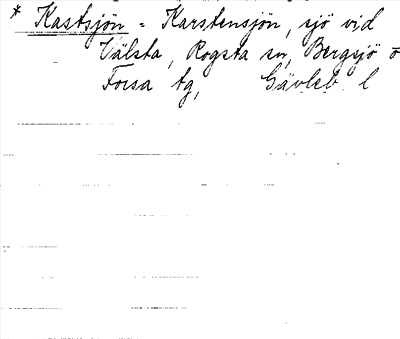 * Kastsjön = Karstensjön, sjö vid
Välsta, Rogsta sn, Bergsjö o
Forsa tg, Gävleb. l